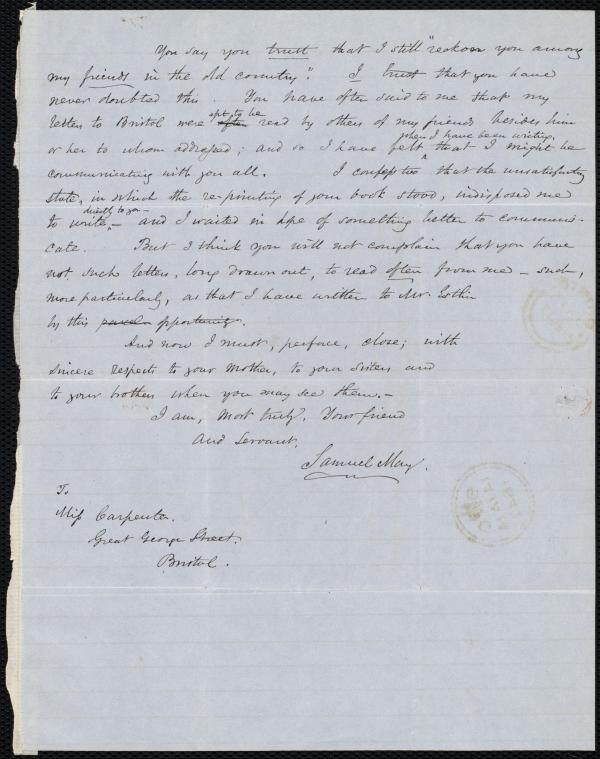 You say you trust that I still "reckon you among
my friends in the old country". I trust that you have
never doubted this. You have often said to me that my
apt to be
letters to Bristol were often read by others of my friends besides him
when I have been writing,
or her to whom addressed; and so I have felt that I might be
communicating with you all. I confess too that the unsatisfactory
state, in which the re-printing of your book stood, indisposed me
directly to you
to write, – and I waited in hope of something better to communi-
cate. But I think you will not complain that you have
not such letters, long drawn out, to read often from me – such,
more particularly, as that I have written to Mr. Estlin
by this opportunity.
And now I must, perforce, close; with
sincere respects to your Mother, to your Sisters and
to your brothers when you may see them. –
I am, most truly, Your friend
and Servant,
Samuel May.
To
Miss Carpenter.
Great George Street.
Bristol.